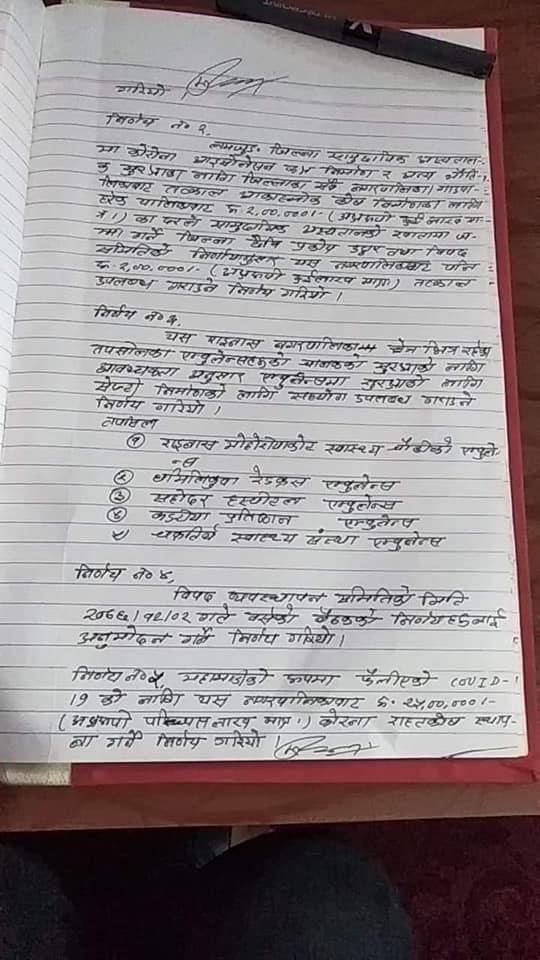 गरियो
निर्णय नं २,
लमजुङ जिल्ला सामुदायिक अस्पताल-
मा कोरोना आइसोलेसन कक्ष निर्माण र अन्य भौति-
क सुरक्षाका लागि जिल्लाका सबै नगरपालिका गाउँपा-
लिकाबाट तत्काल आकस्मिक कोष निर्माणका लागि
प्रत्येक पालिकाबाट रू २,००,०००।- (अक्षरूपी दुई लाख मा-
त्र।) का दरले सामुदायिक अस्पतालको खातामा ज-
म्मा गर्ने जिल्ला दैवि प्रकोप उद्दार तथा विपद
समितिको निर्णयानुसार यस नगरपालिकाबाट पनि
रू २,००,०००।- (अक्षरूपी दुईलाख मात्र।) तत्काल
उपलब्ध गराउने निर्णय गरियो।
निर्णय नं ३,
यस राइनास नगरपालिका क्षेत्र भित्र रहेका
तपसिलका एम्बुलेन्सहरूको चालकको सुरक्षाको लागि
आवश्यकता अनुसार एम्बुलेन्समा सुरक्षाको लागि
सेफ्टी निर्माणको लागि सहयोग उपलब्ध गराउने
निर्णय गरियो।
तपसिल
१ राइनास मोहोरीयाकोट स्वास्थ्य चौकीको एम्बुले-
न्स
२ धमिलिकुवा रेडक्रस एम्बुलेन्स
३ सहोदर हस्पीटल एम्बुलेन्स
४ कडरीया प्रतिष्ठान एम्बुलेन्स
५ चक्रतिर्थ स्वास्थ्य संस्था एम्बुलेन्स
निर्णय नं ४,
विपद व्यवस्थापन समितिको मिति
२०७६/१२/०२ गते बसेको बैठकको निर्णयहरूलाई
अनुमोदन गर्ने निर्णय गरियो।
निर्णय नं ५, महामारीको रूपमा फैलीएको COVID-
19 को लागि यस नगरपालिकाबाट रू. २५,००,०००।-
(अक्षरूपी पच्चिस लाख मात्र।) कोरना राहतकोष स्थाप-
ना गर्ने निर्णय गरियो।